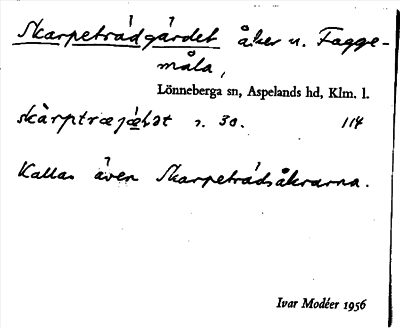 Skarpetrådgärdet åker n. Fagge-
måla,
Lönneberga sn, Aspelands hd, Klm. l.
30. 114
Kallas även Skarpetrådsåkrarna.
Ivar Modéer 1956